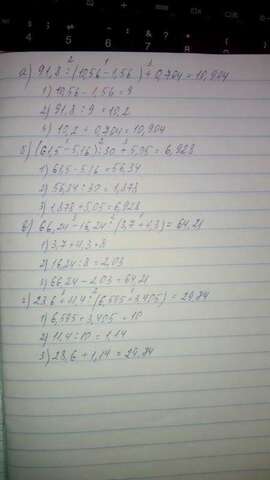 а) 91,8 : (10,56 - 1,56) + 0,704 = 10,904
1) 10,56 - 1,56 = 9
2) 91,8 : 9 = 10,2
3) 10,2 + 0,704 = 10,904
б) (61,5 - 5,16) : 30 + 5,05 = 6,928
1) 61,5 - 5,16 = 56,34
2) 56,34 : 30 = 1,878
3) 1,878 + 5,05 = 6,928
в) 66,24 - 16,24 : (3,7 + 4,3) = 64,21
1) 3,7 + 4,3 = 8
2) 16,24 : 8 = 2,03
3) 66,24 - 2,03 = 64,21
г) 28,6 + 11,4 : (6,595 + 3,405) = 29,74
1) 6,595 + 3,405 = 10
2) 11,4 : 10 = 1,14
3) 28,6 + 1,14 = 29,74